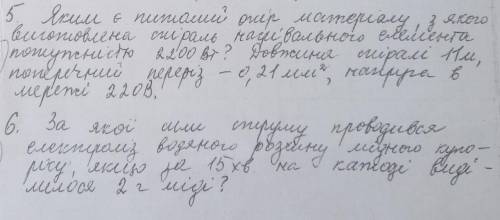 5. Яким є питомий опір матеріалу, з якого
виготовлена спіраль нагрівального елемента
потужністю 2200 Вт? Довжина спіралі 11м,
поперечний переріз – 0,21 мм², напруга в
мережі 220В.
6. За якої сили струму проводився
електроліз водяного розчину мідного купо-
росу, якщо за 15 хв на катоді виді-
лилося 2 г міді?